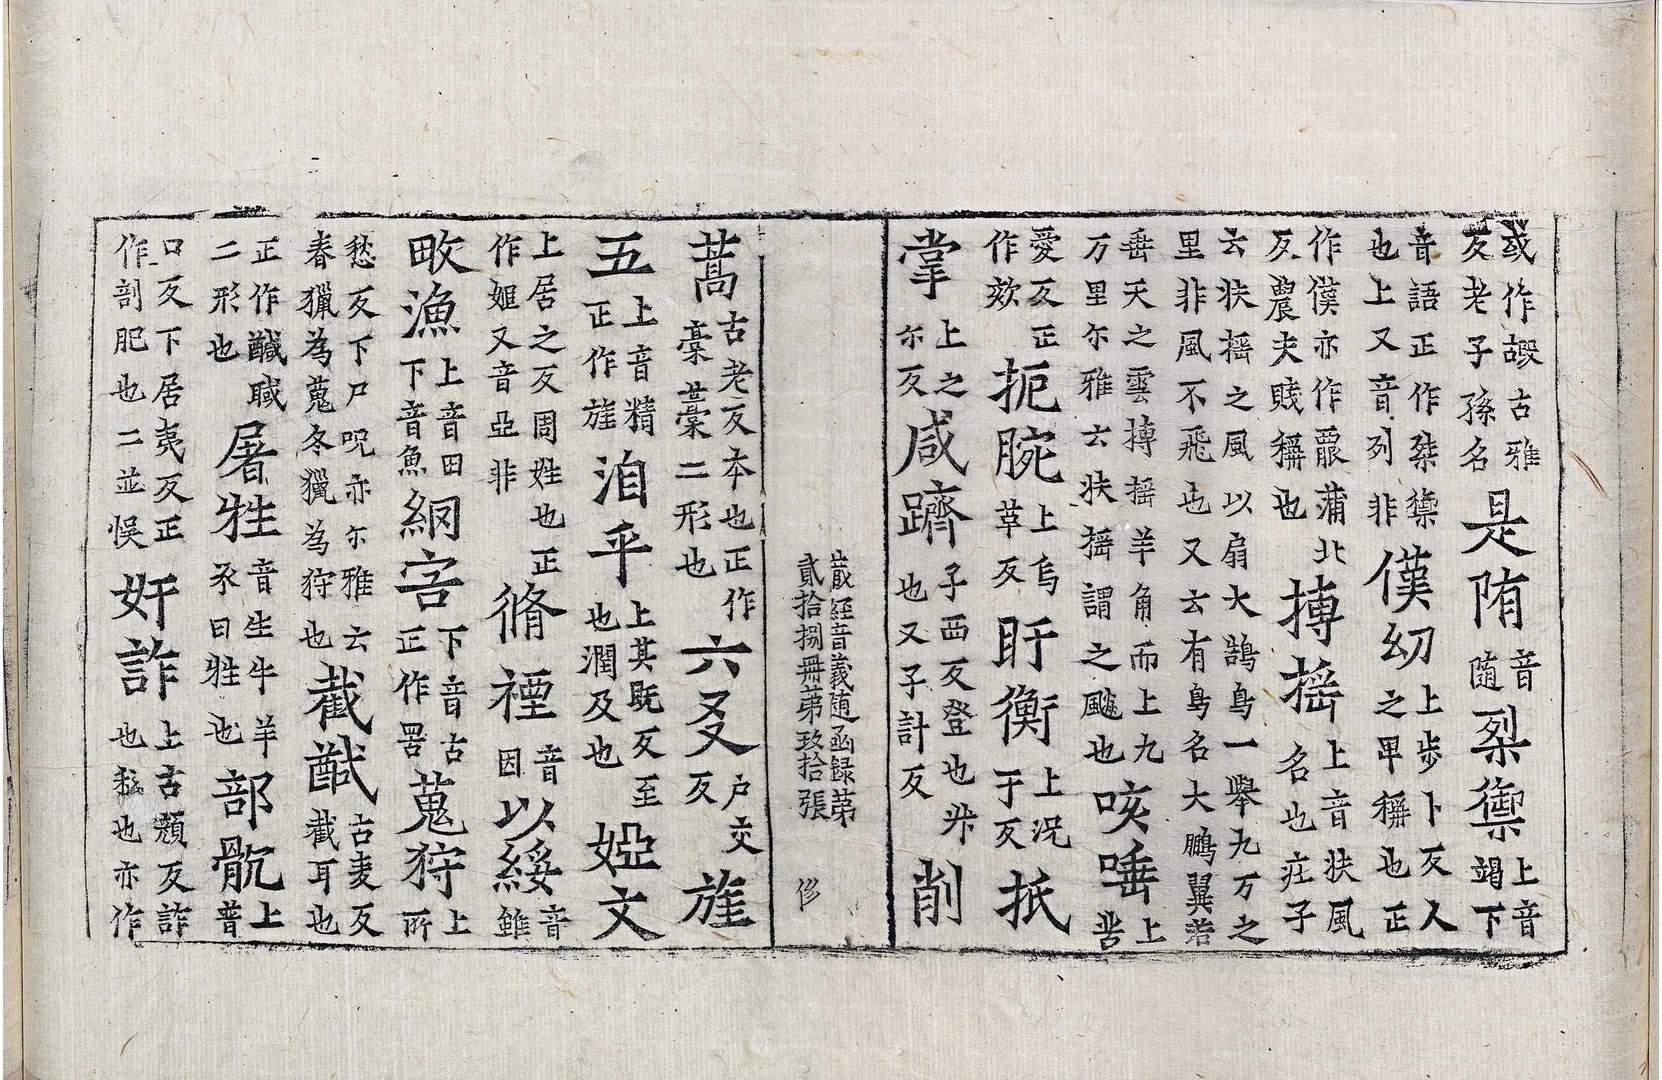 或作嘏古雅反老子孫名是陏音随烈禦上音竭下
音語正作桀禦也上又音列非僕㓜上步卜反人之甲稱也正
作僕亦作䑑蒲北反農夫賤稱也摶揺上音扶風名也疰子
云扶揺之風以扇大鵠鳥一舉九万之里非風不飛也又云有鳥名大鵬翼若
垂天之雲摶揺羊角而上九万里尔雅云扶揺謂之飈也咳唾上苦
愛反正作欬扼腕上烏草反盱衡上况于反扺
掌上之尓反咸躋子西反登也升也又子計反削
藏經音義随函録苐貳拾捌冊苐玖拾張 侈
蒿古老反本也正作槀藁二形也六爻户交反旌
五上音精正作旌洎乎上其既反至也潤及也婭文
上居之反周姓也正作姬又音亞非脩禋音因以綏音雖
畋漁上音田下音魚網𡧱下音古正作罟蒐狩上所
愁反下尸呪亦尓雅云春獵為蒐冬獵為狩也截馘古麦反截耳也
正作馘聝二形也屠牲音生牛羊豕曰牲也部骯上普
口反下居夷反正作剖肥也二並悮奸詐上古顔反詐也猛也亦作